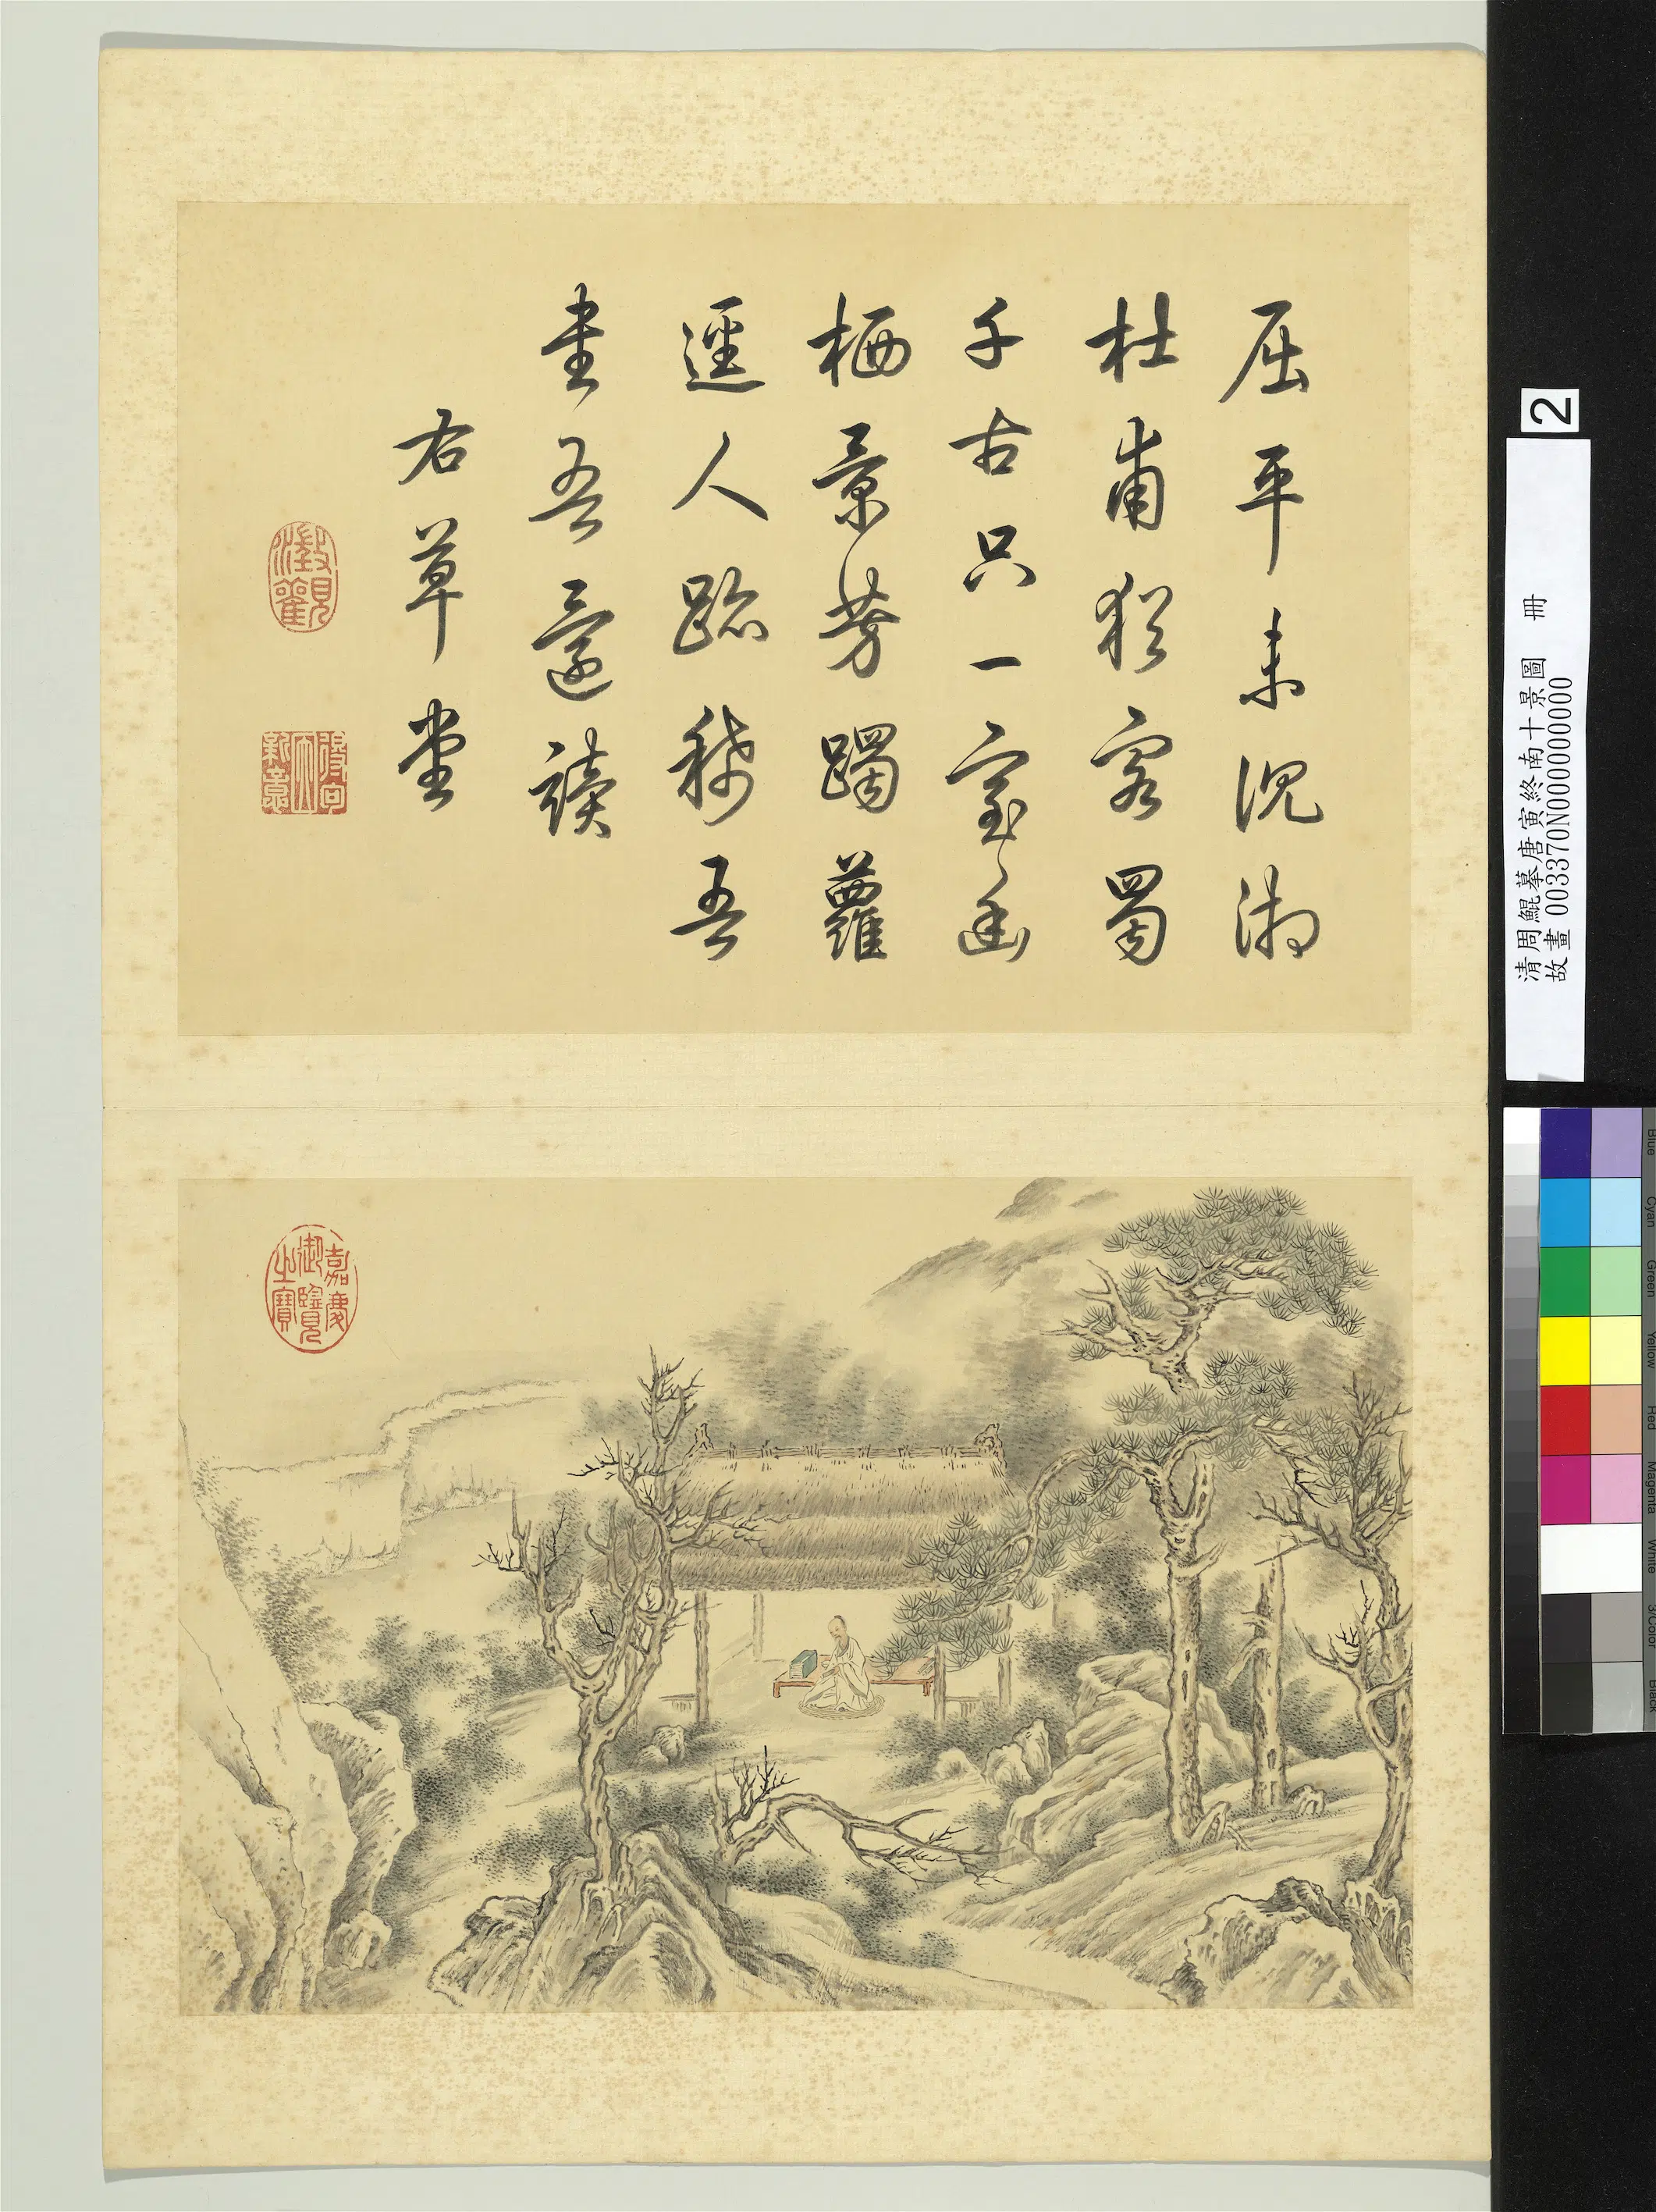 屈平未沉湘
杜甫猶客蜀
千古只一室幽
栖景芳躅蘿
逕人跡稀吾
書吾還讀
右草堂
澂觀
嘉慶御覽之寶
2
清周鯤摹唐寅終南十景圖 冊
故畫 003370N000000000
Blue
Cyan
Green
Yellow
Red
Magenta
White
3/Color
Black